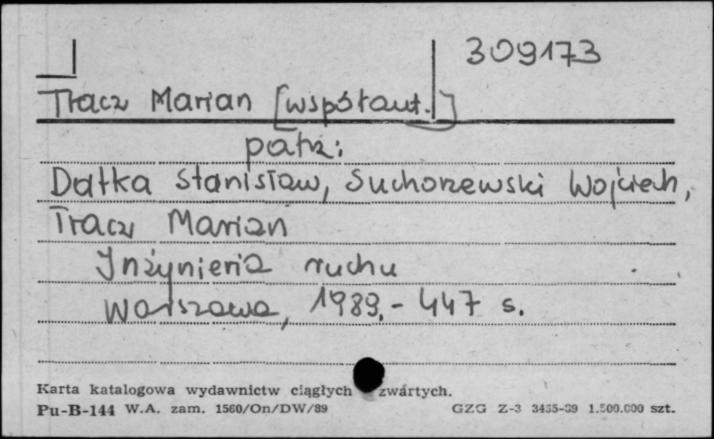 309173
Tracz Marian [współaut.]
patrz:
Datka Stanisław, Suchorzewski Wojciech,
Tracz Marian
Inżynieria ruchu
Warszawa, 1989.- 447 s.
Karta katalogowa wydawnictw ciągłych zwartych.
Pu-B-144 W.A. zam. 1560/On/DW/89 GZG Z-3 3435-89 1.500.000 szt.